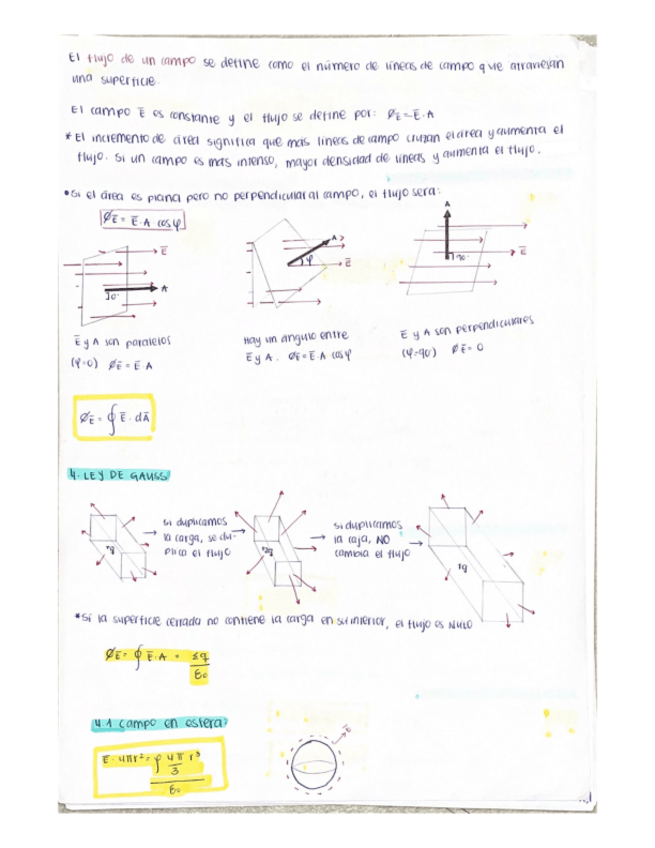 El flujo de un campo se define como el número de líneas de campo que atraviesan
una superficie.
El campo E̅ es constante y el flujo se define por: ØE̅ = E̅·A
* El incremento de área significa que más líneas de campo cruzan el área y aumenta el
flujo. Si un campo es más intenso, mayor densidad de líneas y aumenta el flujo.
• Si el área es plana pero no perpendicular al campo, el flujo será:
ØE̅ = E̅·A cosφ
E̅
A
0°
A
φ
E̅
A
90°
E̅
E̅ y A son paralelos
(φ=0) ØE̅ = E̅·A
Hay un ángulo entre
E̅ y A. ØE̅ = E̅·A cosφ
E̅ y A son perpendiculares
(φ=90°) ØE̅ = 0
ØE̅ = ∮ E̅·dA̅
4. LEY DE GAUSS
si duplicamos
la carga, se du-
plica el flujo
si duplicamos
la caja, NO
cambia el flujo
*Si la superficie cerrada no contiene la carga en su interior, el flujo es NULO
ØE̅ = ∮ E̅·A = Σq / ε₀
4.1 Campo en esfera:
E̅·4πr² = ρ 4π/3 r³ / ε₀